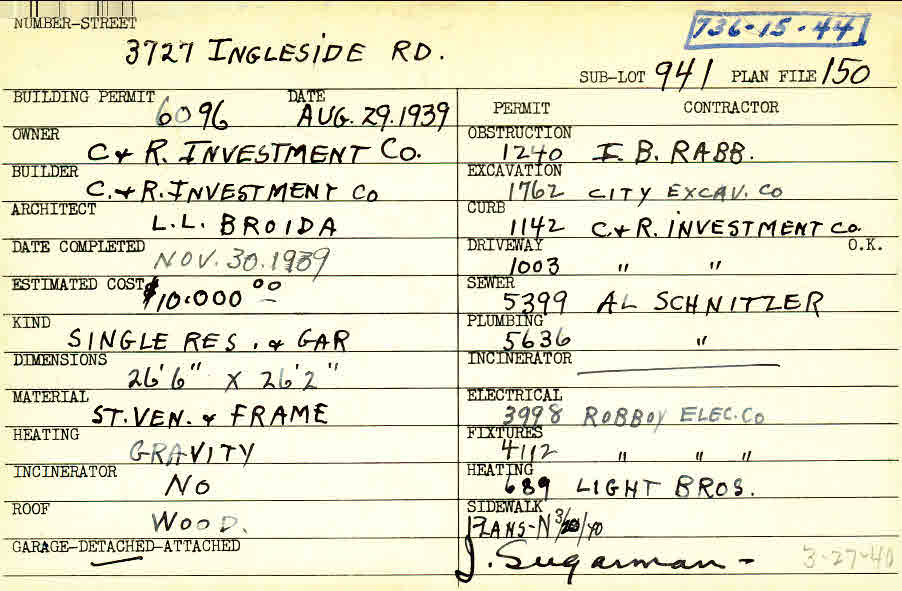 NUMBER-STREET
736-15-44
3727 INGLESIDE RD.
SUB-LOT 941 PLAN FILE 150
BUILDING PERMIT 6096 DATE AUG. 29. 1939
OWNER C & R. INVESTMENT CO.
BUILDER C. & R. INVESTMENT CO
ARCHITECT L.L. BROIDA
DATE COMPLETED NOV. 30. 1939
ESTIMATED COST $10.000 00
KIND SINGLE RES. & GAR
DIMENSIONS 26'6" X 26'2"
MATERIAL ST. VEN. & FRAME
HEATING GRAVITY
INCINERATOR NO
ROOF WOOD.
GARAGE-DETACHED-ATTACHED
PERMIT CONTRACTOR
OBSTRUCTION 1240 I. B. RABB.
EXCAVATION 1762 CITY EXCAV. CO
CURB 1142 C & R. INVESTMENT CO.
DRIVEWAY 1003 " " O.K.
SEWER 5399 AL SCHNITZER
PLUMBING 5636 "
INCINERATOR
ELECTRICAL 3998 ROBBOY ELEC. CO
FIXTURES 4112 " " "
HEATING 689 LIGHT BROS.
SIDEWALK
PLANS-N
J. Sugarman - 3-27-40